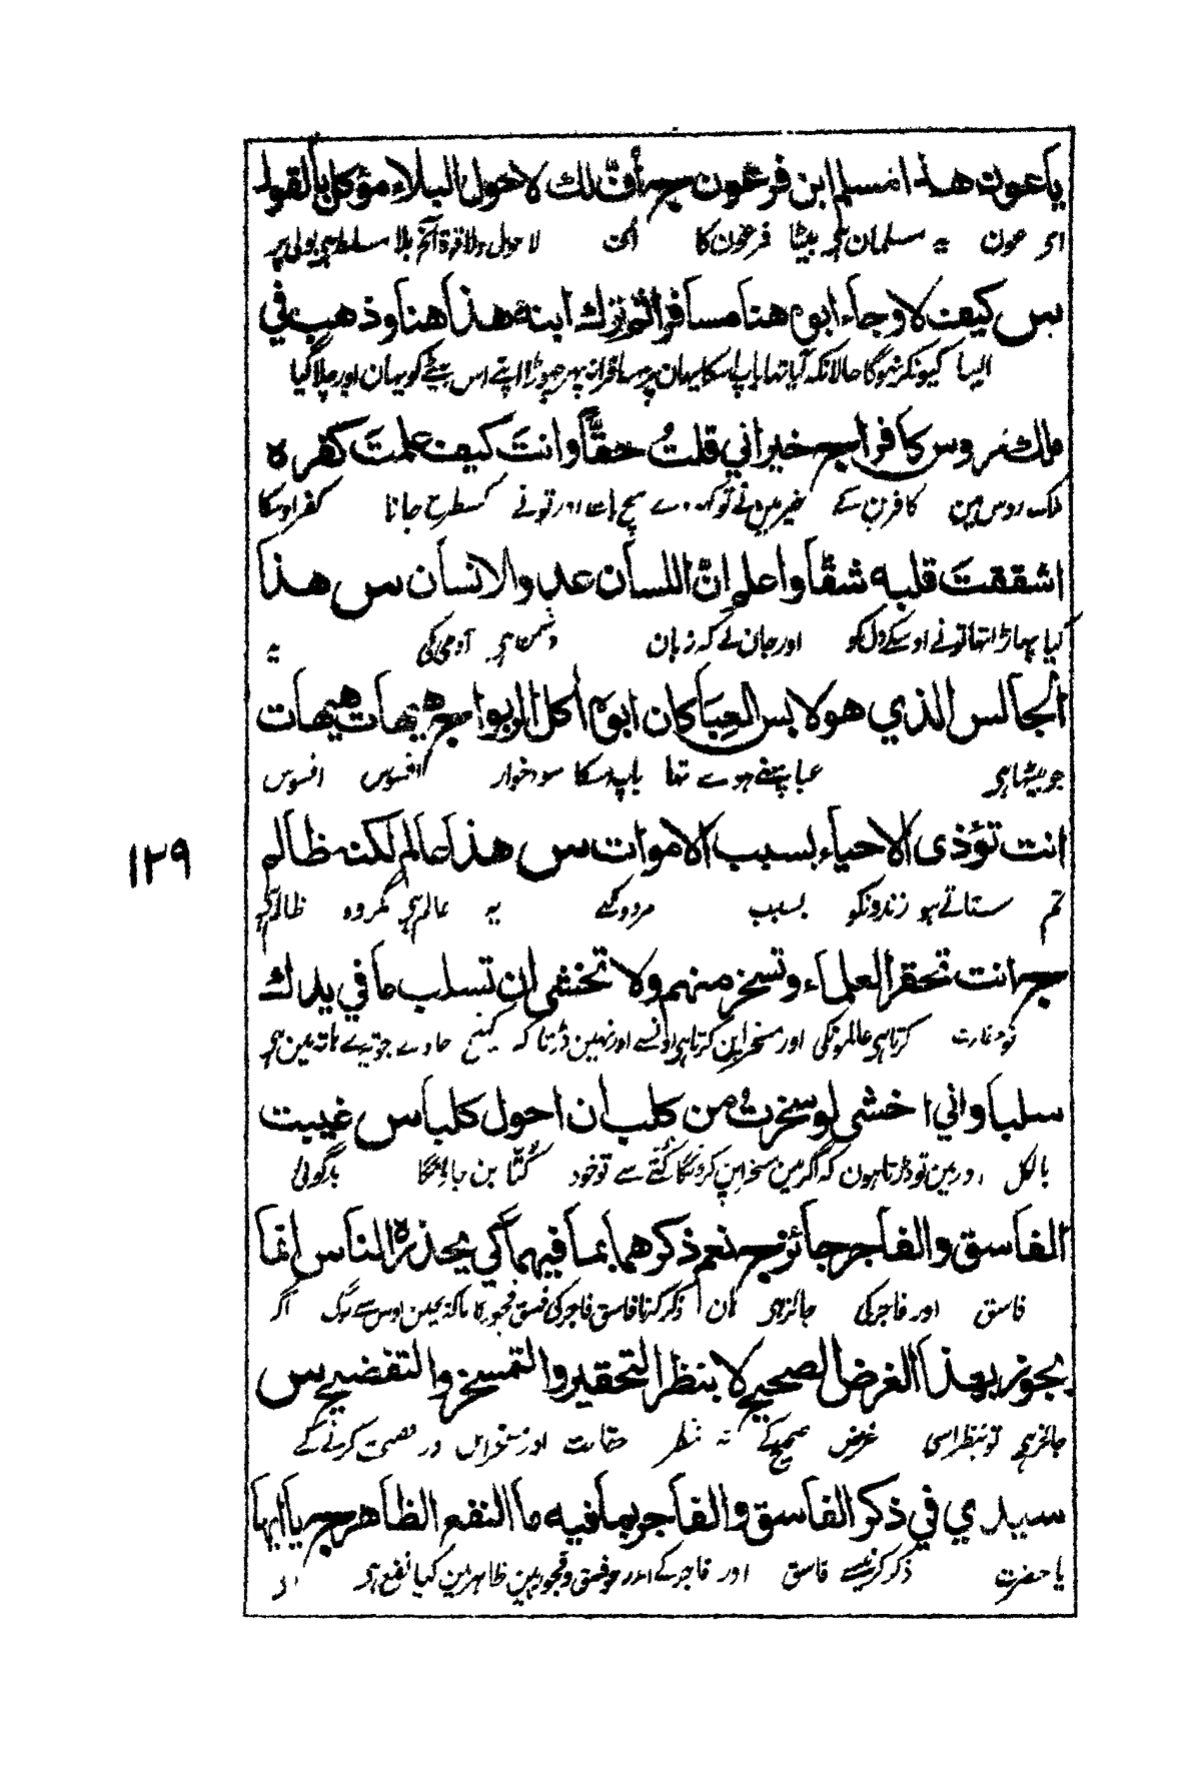 يا عون هذا مسلم ابن فرعون ج أفّ لك لا حول البلاء مؤكل بالقول
ای عون یہ مسلمان ہی بیٹا فرعون کا اُف لا حول ولا قوۃ آلخ بلا مسلط ہی بولی پر
س كيف لا وجاء ابوه هنا مسافرا ثم ترك ابنه هذا هنا وذهب في
ایسا کیونکر نہوگا حالانکہ آیا تہا باپ اسکا یہان پر مسافرانہ پہر چہوڑا اپنے اس بیٹے کو یہان اور چلا گیا
ملك روس كافرا ج خيراني قلتُ حقًّا وانتَ كيف علمتَ كفره
ملک روس مین کافر بن کے خیر مین نے تو کہہ دے سچ بات اور تونے کسطرح جانا کفر اوسکا
اشققتَ قلبه شقًّا واعلم انّ اللسان عدو الانسان س هذا
کیا پہاڑا تہا تونے اوسکے دل کو اور جان لے کہ زبان دشمن ہی آدمی کی یہ
الجالس الذي هو لابس العِبَا كان ابوه أكل الربوا ج هيهات هيهات
جو بیٹہا ہی عبا پہنے ہوے تہا باپ اسکا سودخوار افسوس افسوس
انت تؤذى الاحياء بسبب الاموات س هذا عالم لكنه ظالم
تم ستاتے ہو زندونکو بسبب مردونکے یہ عالم ہی مگر وہ ظالم ہے
ج انت تحقر العلماء وتسخر منهم ولا تخشى ان تسلب ما في يدك
تو حقارت کرتا ہی عالمونکی اور مسخراپن کرتا ہی اونسے اور نہین ڈرتا کہ چہن جاوے جو تیرے ہاتہ مین ہی
سلبا واني اخشى لو سخرتُ من كلب أن احول كلبا س غيبت
بالکل اور مین تو ڈرتا ہون کہ اگر مین مسخراپن کرونگا کُتّے سے تو خود کُتّا بن جاؤنگا بدگوئی
الفاسق والفاجر جائز ج نعم ذكرهما بما فيهما كي يحذره الناس انما
فاسق اور فاجر کی جائز ہی ہان ذکر کرنا فاسق فاجر کی فسق فجور کا تاکہ بچین اوس سے لوگ اگر
يجوز بهذا الغرض الصحيح لا بنظر التحقير والتمسخر والتفضيح س
جائز ہی تو بنظر اسی غرض صحیح کے نہ بنظر حقارت اور مسخراپن اور فضیحت کرنے کے
سيدي في ذكر الفاسق والفاجر بما فيه ما النفع الظاهر ج يا ايها
یا حضرت ذکر کرنیسے فاسق اور فاجر کے اور جو فسق و فجور ہین ظاہر مین کیا نفع ہی
١٢٩